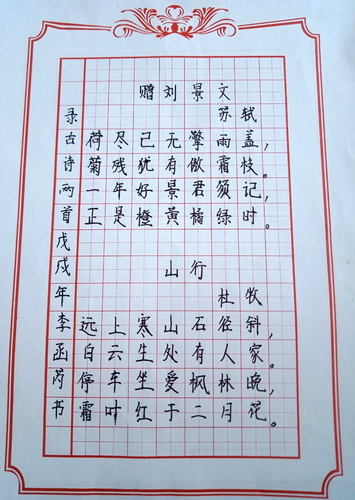 赠刘景文
苏轼
荷尽已无擎雨盖，
菊残犹有傲霜枝。
一年好景君须记，
正是橙黄橘绿时。
山行
杜牧
远上寒山石径斜，
白云生处有人家。
停车坐爱枫林晚，
霜叶红于二月花。
录古诗两首戊戌年李函芮书